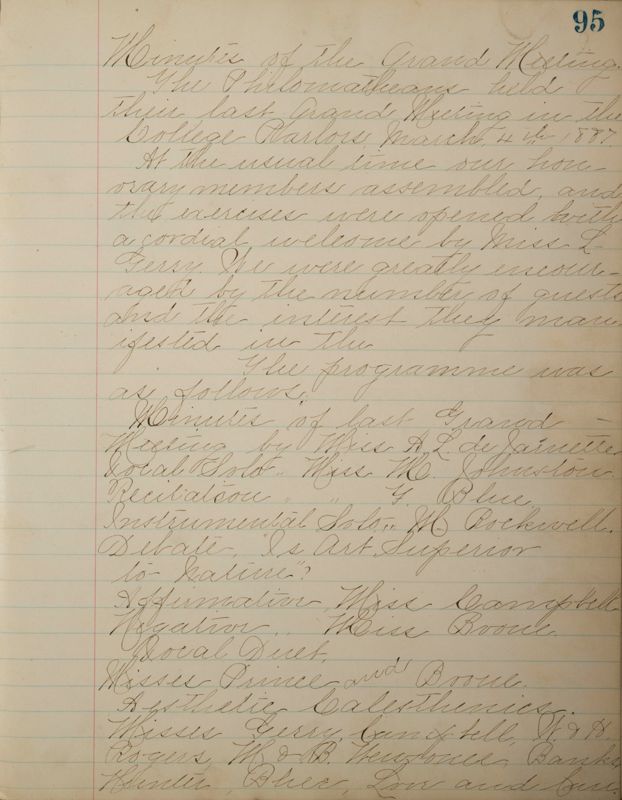 95
Minutes of the Grand Meeting.
The Philomatheans held
their last Grand Meeting in the
College Parlors, March, 4th 1887
At the usual time our hon-
orary members assembled, and
the exercises were opened with
a cordial welcome by Miss L
Gerry. We were greatly encour-
aged by the number of guests
and the interest they man-
ifested in the
The programme was
as follows.
Minutes of last Grand -
Meeting by Miss A. L. de Jarnette
Vocal Solo " Miss M. Johnston
Recitation " " G. Blue.
Instrumental Solo, " M Rockwell.
Debate, "Is Art Superior
to Nature"?
Affirmative, Miss Campbell
Negative " Miss Boone.
Vocal Duet.
Misses Prince and Boone.
Aesthetic Calesthenics.
Misses Gerry, Campbell, & H.
Rogers, M & B. Banks
Hunter, Blue, Low and